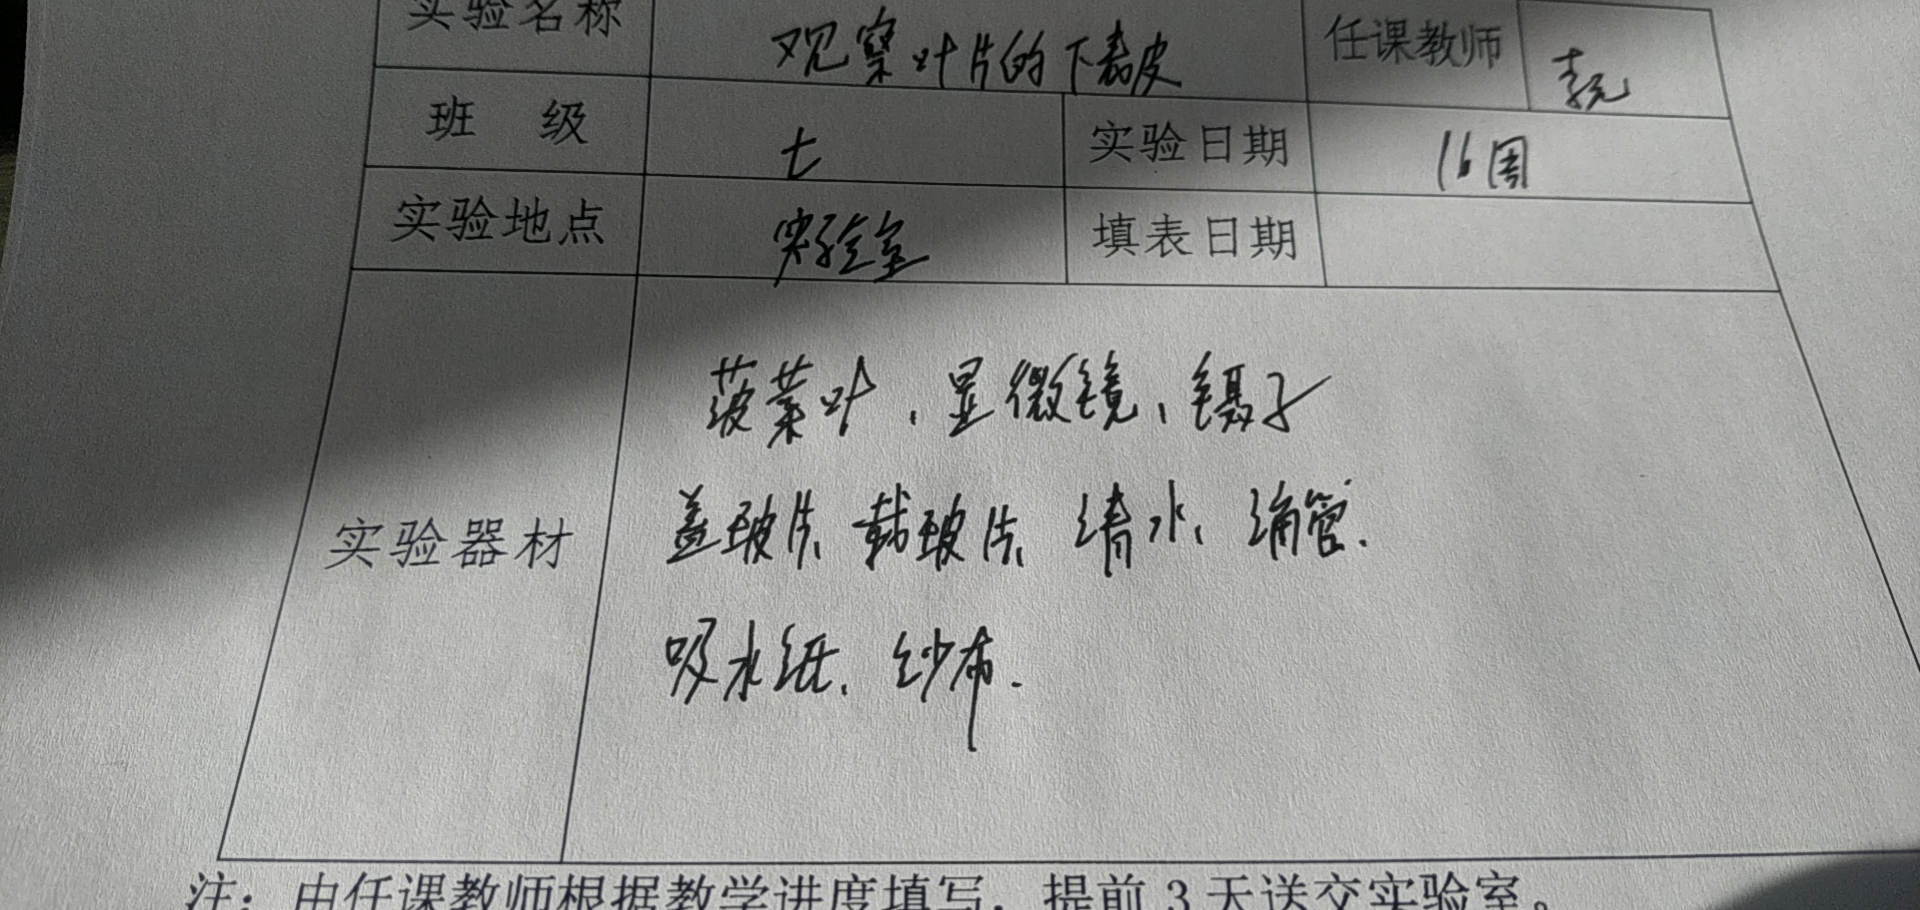 实验名称 观察叶片的下表皮 任课教师
班 级 七 实验日期 16周
实验地点 实验室 填表日期
菠菜叶、显微镜、镊子
实验器材 盖玻片、载玻片、清水、滴管、
吸水纸、纱布.
注：由任课教师根据教学进度填写，提前3天送交实验室。